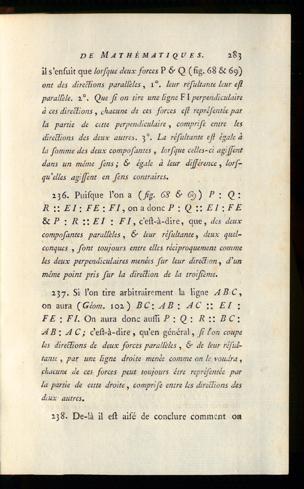 DE MATHÉMATIQUES. 283
il s'ensuit que lorsque deux forces P & Q (fig. 68 & 69)
ont des directions parallèles, 1°. leur résultante leur est
parallèle. 2°. Que si on tire une ligne FI perpendiculaire
à ces directions, chacune de ces forces est représentée par
la partie de cette perpendiculaire, comprise entre les
directions des deux autres. 3°. La résultante est égale à
la somme des deux composantes, lorsque celles-ci agissent
dans un même sens; & égale à leur différence, lors-
qu'elles agissent en sens contraires.
236. Puisque l'on a (fig. 68 & 69) P : Q :
R :: EI : FE : FI, on a donc P : Q :: EI : FE
& P : R :: EI : FI, c'est-à-dire, que, des deux
composantes parallèles, & leur résultante, deux quel-
conques, sont toujours entre elles réciproquement comme
les deux perpendiculaires menées sur leur direction, d'un
même point pris sur la direction de la troisième.
237. Si l'on tire arbitrairement la ligne ABC,
on aura (Géom. 102) BC : AB : AC :: EI :
FE : FI. On aura donc aussi P : Q : R :: BC :
AB : AC; c'est-à-dire, qu'en général, si l'on coupe
les directions de deux forces parallèles, & de leur résul-
tante, par une ligne droite menée comme on le voudra,
chacune de ces forces peut toujours être représentée par
la partie de cette droite, comprise entre les directions des
deux autres.
238. De-là il est aisé de conclure comment on